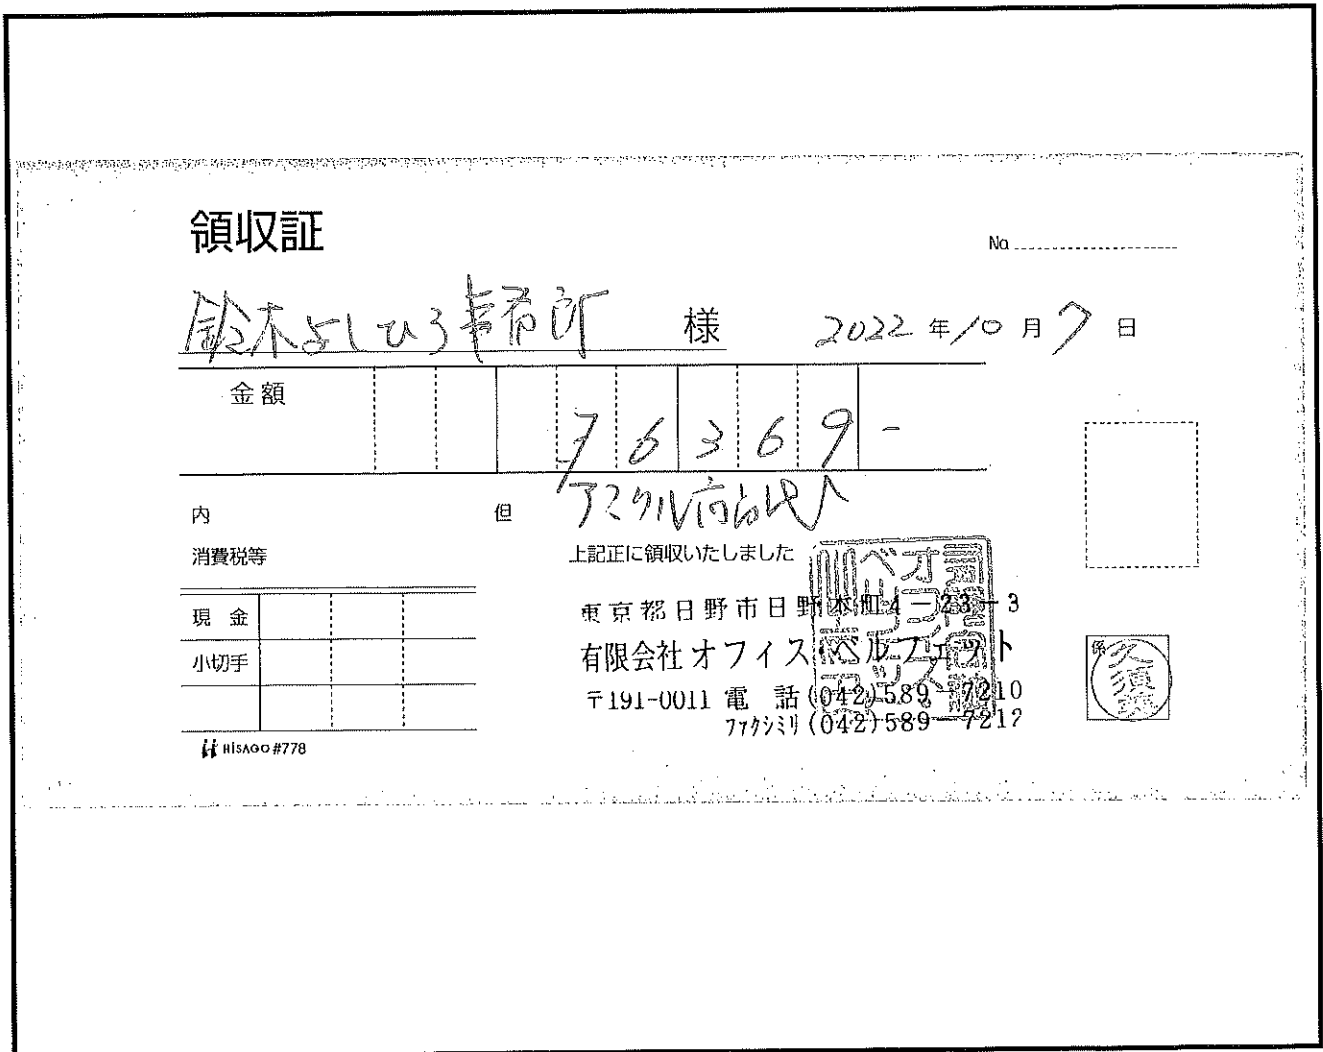 領収証
No
鈴木よしひろ事務所 様 2022年10月7日
金額 76369-
内 但 アスクル商品代
消費税等 上記正に領収いたしました
現金
小切手
東京都日野市日野本町4-23-3
有限会社オフィス・ベルフェット
〒191-0011 電 話(042)589-7210
ファクシミリ(042)589-7212
係
HISAGO #778